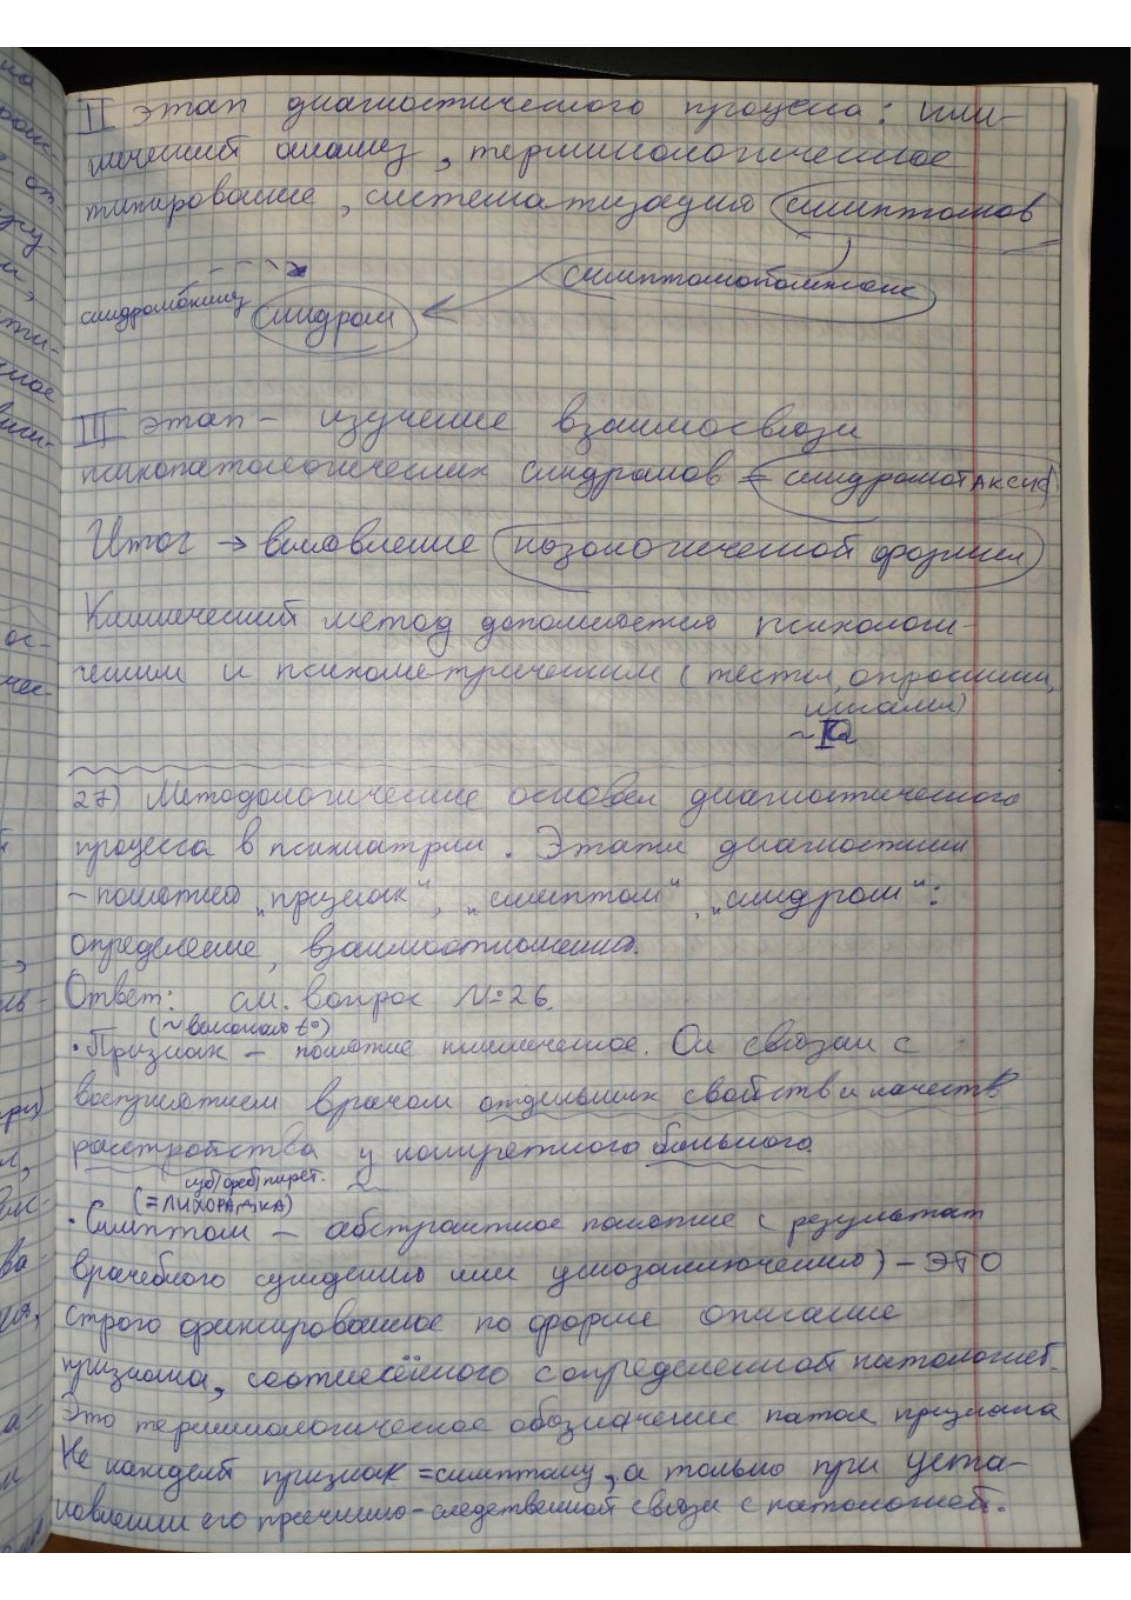 II этап диагностического процесса: кли-
нический анализ, терминологическое
типирование, систематизация симптомов
симптомокомплекс
синдромокинез синдром
III этап - изучение взаимосвязи
психопатологических синдромов = синдромотаксис
Итог → выявление нозологической формы
Клинический метод дополняется психологи-
ческим и психометрическим (тесты, опросники,
шкалы)
~ IQ
27) Методологические основы диагностического
процесса в психиатрии. Этапы диагностики
- понятия „признак“, „симптом“, „синдром“:
определение, взаимоотношения.
Ответ: см. вопрос №26.
(~высокая t°)
• Признак - понятие клиническое. Он связан с
восприятием врачом отдельных свойств и качеств
расстройства у конкретного больного.
суб/феб/пирет.
(=ЛИХОРАДКА)
• Симптом - абстрактное понятие (результат
врачебного суждения или умозаключения) - ЭТО
строго фиксированное по форме описание
признака, соотнесённого с определенной патологией.
Это терминологическое обозначение патол признака
Не каждый признак = симптому, а только при уста-
новлении его причинно-следственной связи с патологией.